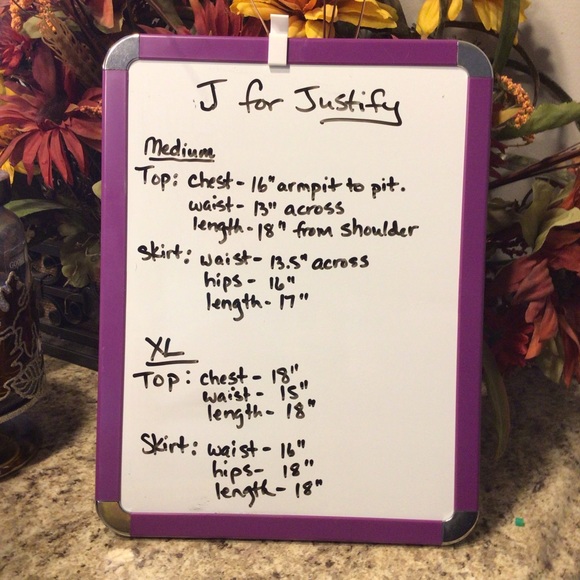 J for Justify
Medium
Top: chest - 16" armpit to pit.
waist - 13" across
length - 18" from shoulder
Skirt: waist - 13.5" across
hips - 16"
length - 17"
XL
Top: chest - 18"
waist - 15"
length - 18"
Skirt: waist - 16"
hips - 18"
length - 18"